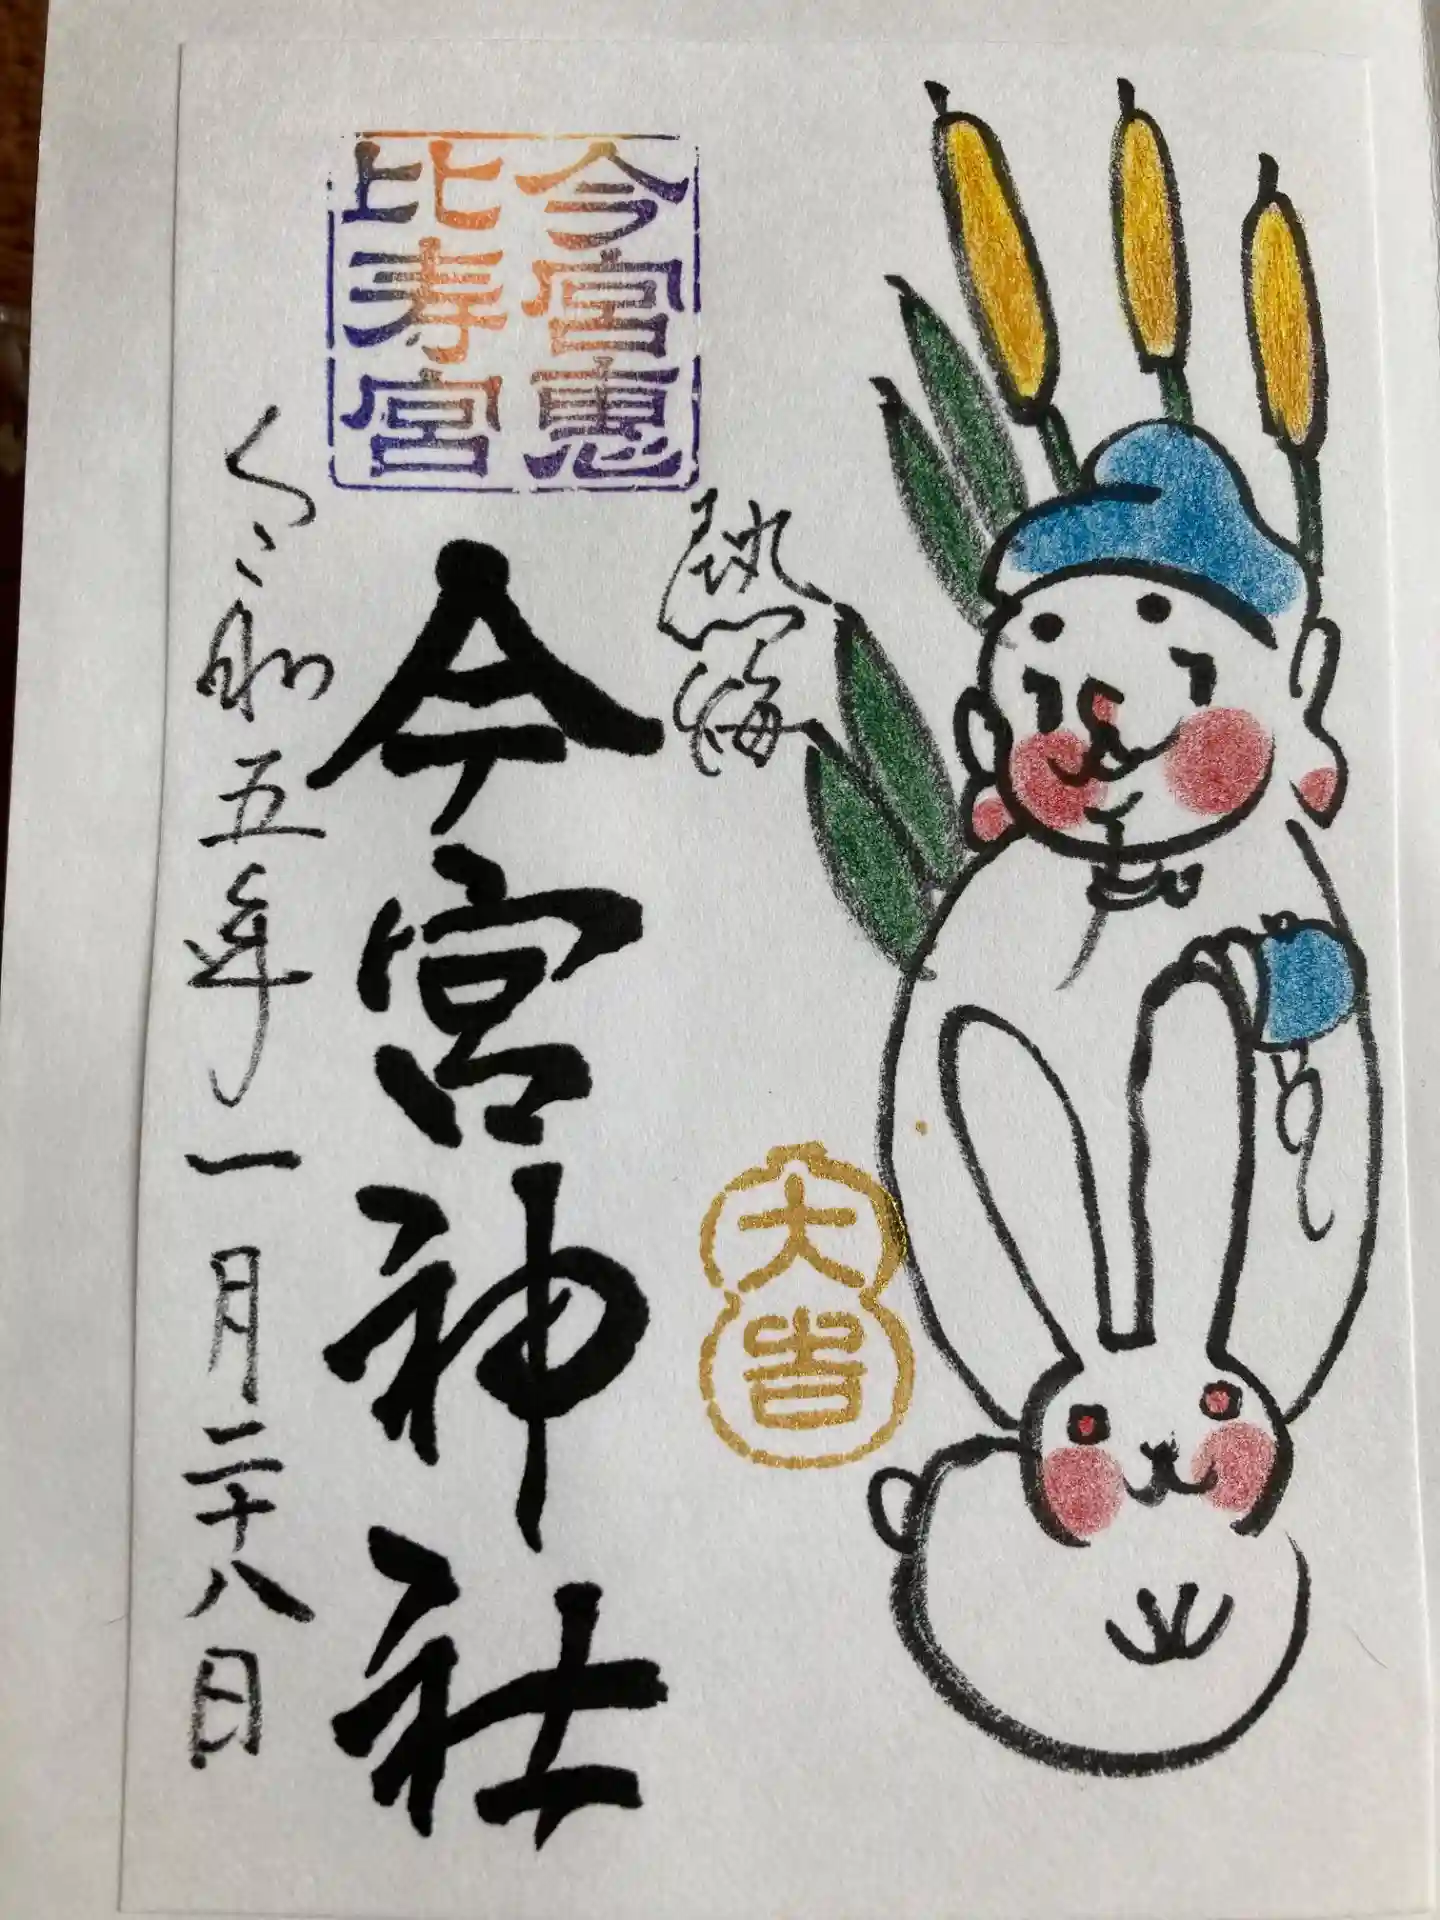 熱海
今宮恵
比寿宮
今宮神社
大吉
令和五年一月二十八日